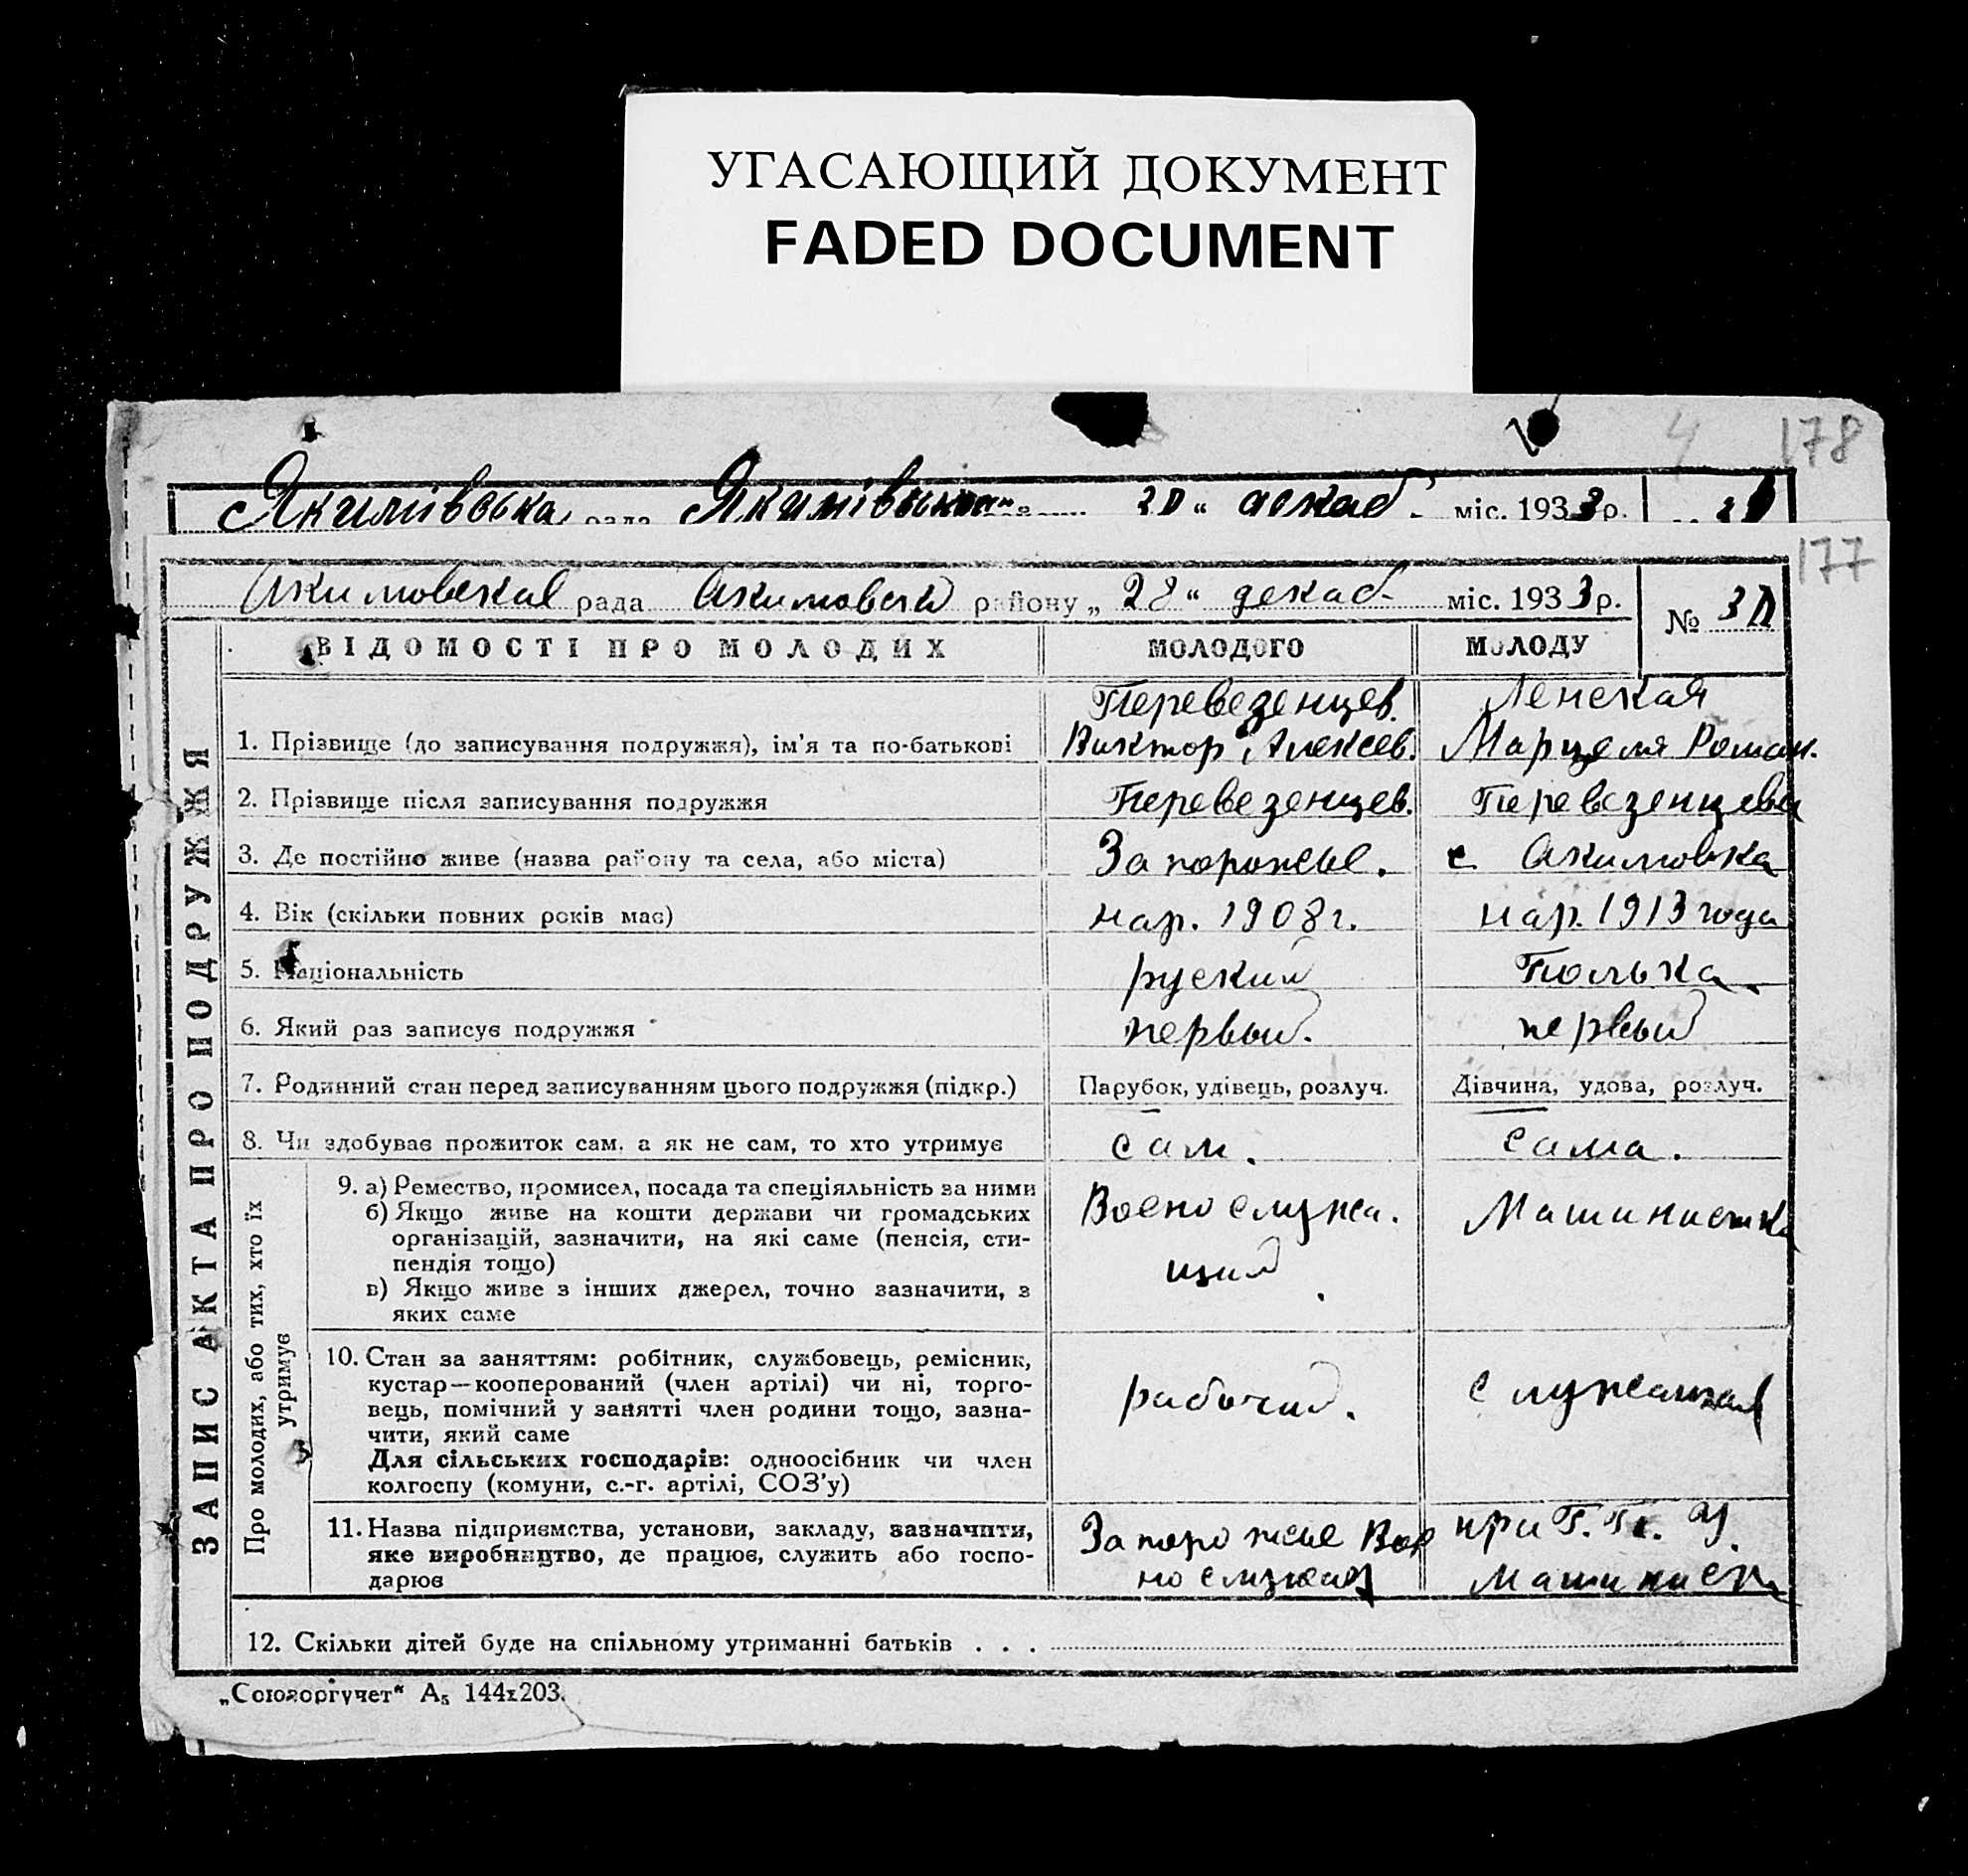 УГАСАЮЩИЙ ДОКУМЕНТ
FADED DOCUMENT
4 178
Якимівська рада Якимівського 20 " декаб - міс. 1933 р.
177
Акимовская рада Акимовский району „ 28 " декаб- міс. 1933 р. №
ВІДОМОСТІ ПРО МОЛОДИХ МОЛОДОГО МОЛОДУ
ЗАПИС АКТА ПРО ПОДРУЖЖЯ
Перевезенцев. Ленская
1. Прізвище (до записування подружжя), ім'я та по-батькові Виктор Алексев. Марцеля Роман.
2. Прізвище після записування подружжя Перевезенцев. Перевезенцева
3. Де постійно живе (назва району та села, або міста) Запорожье. с Акимовка
4. Вік (скільки повних років має) нар. 1908 г. нар. 1913 года
5. Національність руский Полька.
6. Який раз записує подружжя первый. первый
7. Родинний стан перед записуванням цього подружжя (підкр.) Парубок, удівець, розлуч. Дівчина, удова, розлуч.
8. Чи здобуває прожиток сам, а як не сам, то хто утримує сам. сама.
Про молодих, або тих, хто їх утримує
9. а) Ремество, промисел, посада та спеціяльність за ними Воено служа. Машинистка
б) Якщо живе на кошти держави чи громадських
організацій, зазначити, на які саме (пенсія, сти-
пендія тощо) щий
в) Якщо живе з інших джерел, точно зазначити, з
яких саме
10. Стан за заняттям: робітник, службовець, ремісник,
кустар—кооперований (член артілі) чи ні, торго- рабочий. служащая
вець, помічний у занятті член родини тощо, зазна-
чити, який саме
Для сільських господарів: одноосібник чи член
колгоспу (комуни, с.-г. артілі, СОЗ'у)
11. Назва підприємства, установи, закладу, зазначити, Запорожье Вое при Г. П. У.
яке виробництво, де працює, служить або госпо-
дарює но служащ Машинистк
12. Скільки дітей буде на спільному утриманні батьків . . .
„Союзоргучет" А₅ 144х203.